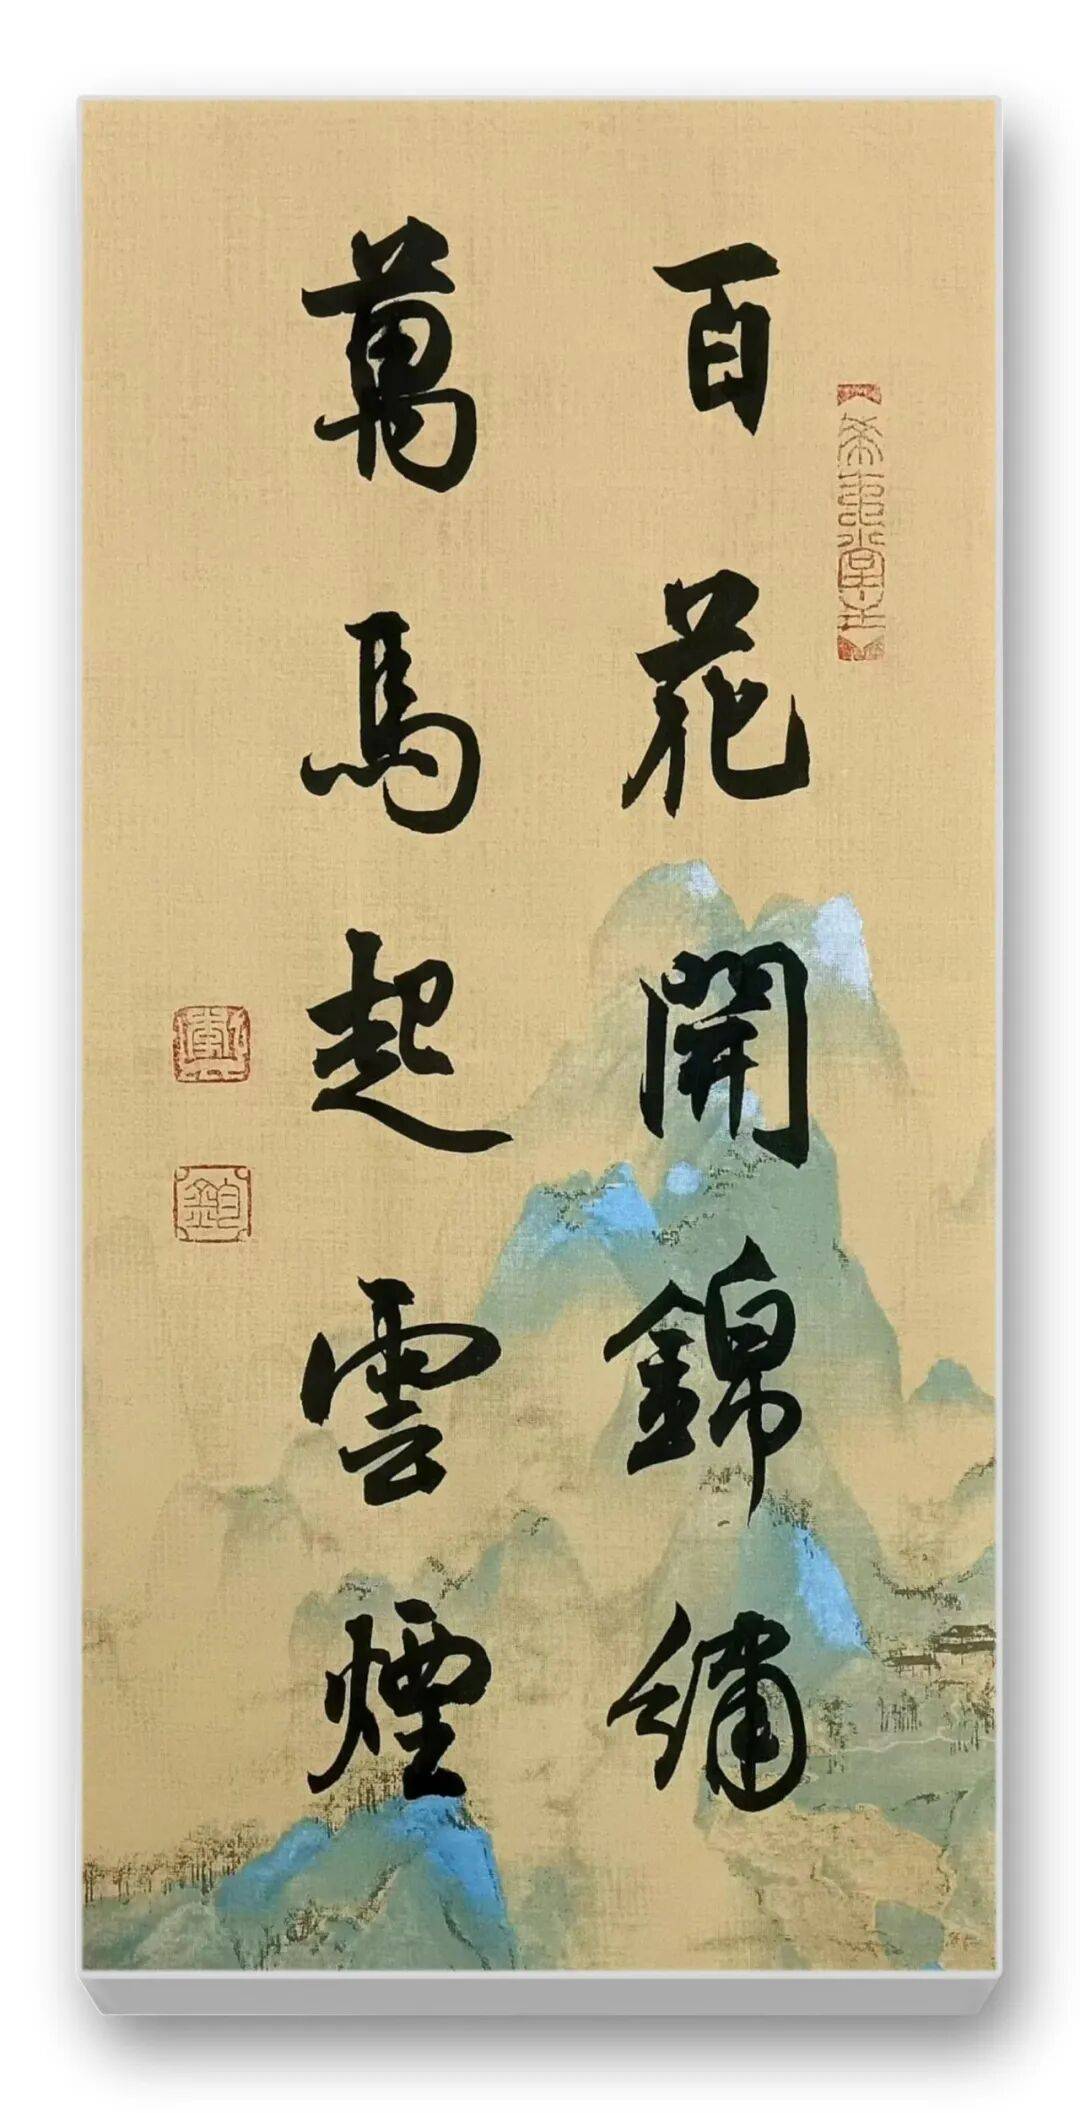 百花開錦繡
萬馬起雲煙